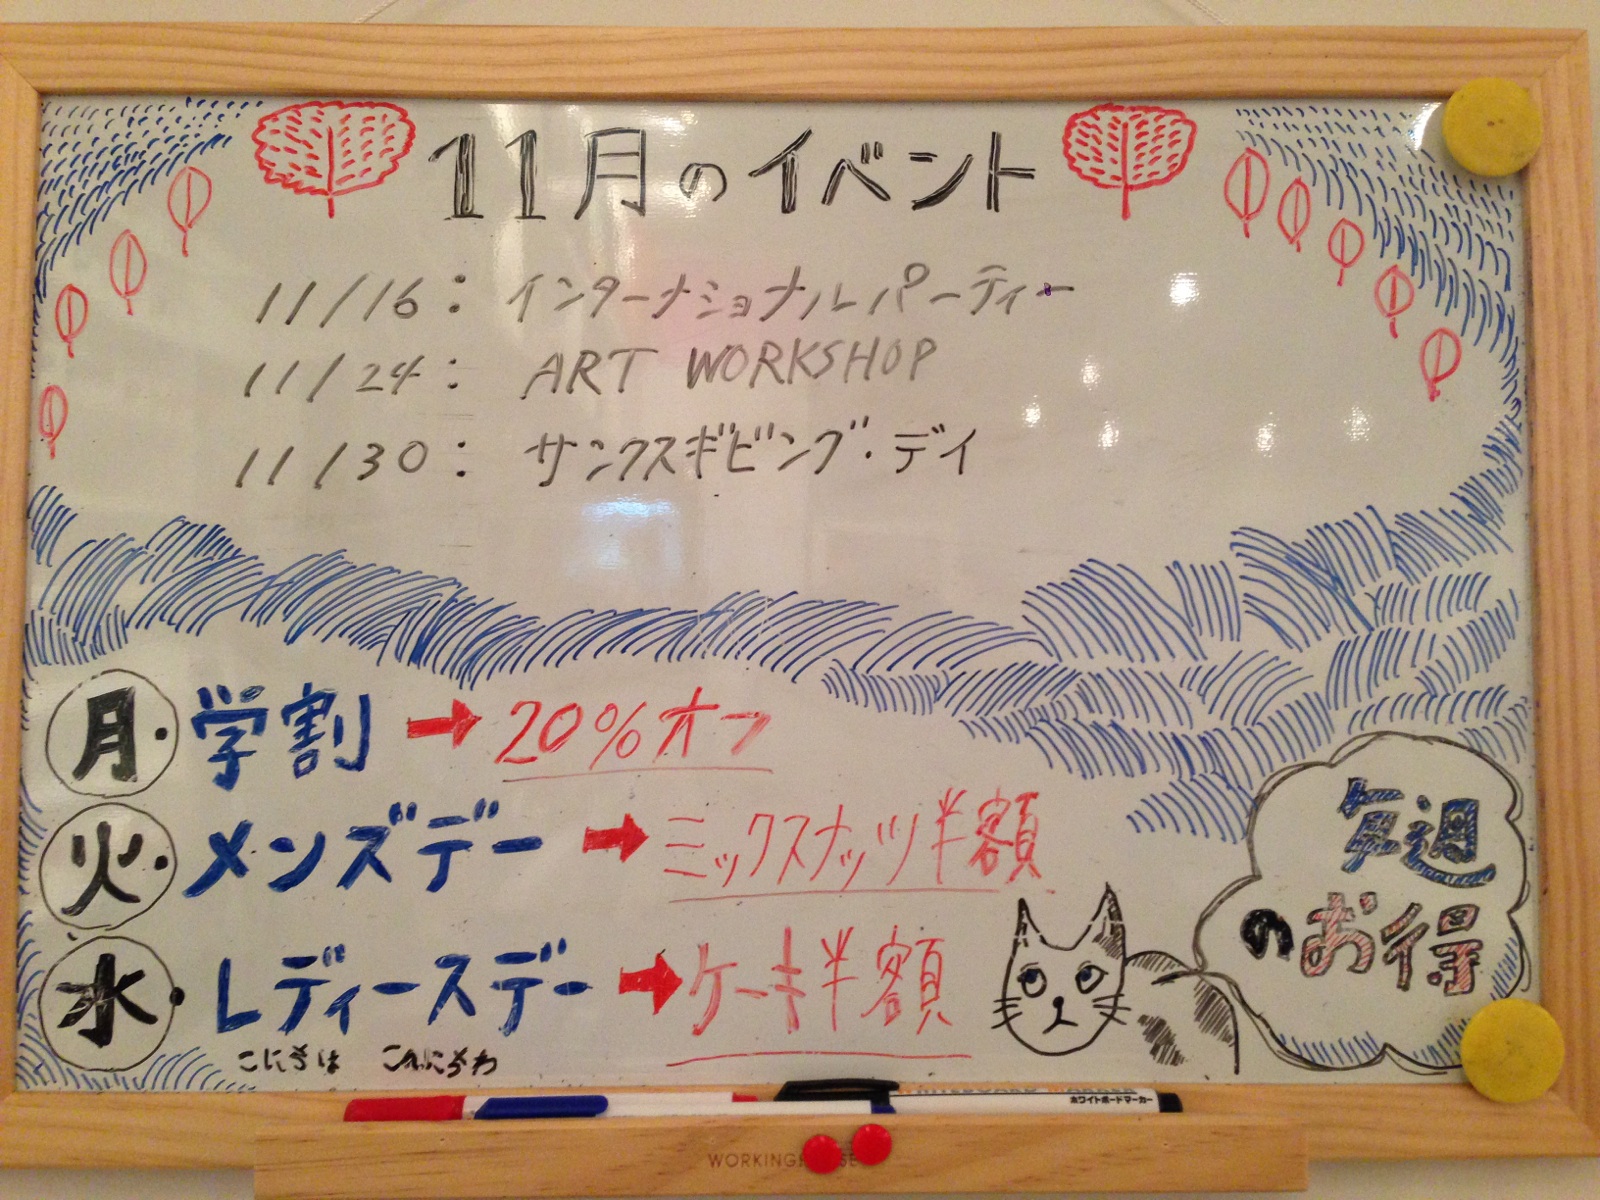 11月のイベント
11/16：インターナショナルパーティー
11/24：ART WORKSHOP
11/30：サンクスギビング・デイ
月・学割 → 20%オフ
火・メンズデー → ミックスナッツ半額
水・レディースデー → ケーキ半額
毎週
のお得
WHITEBOARD MARKER
ホワイトボードマーカー